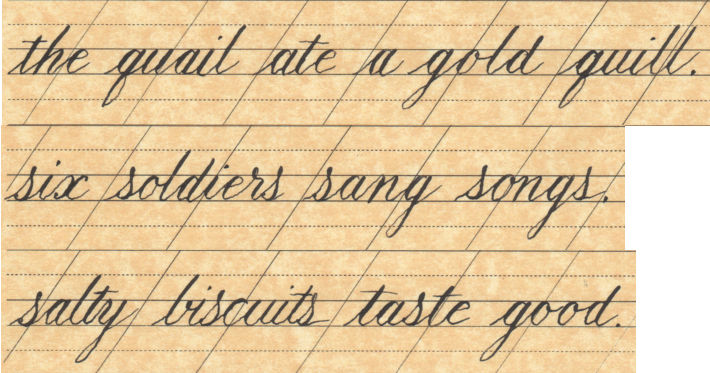 the quail ate a gold quill.
six soldiers sang songs.
salty biscuits taste good.